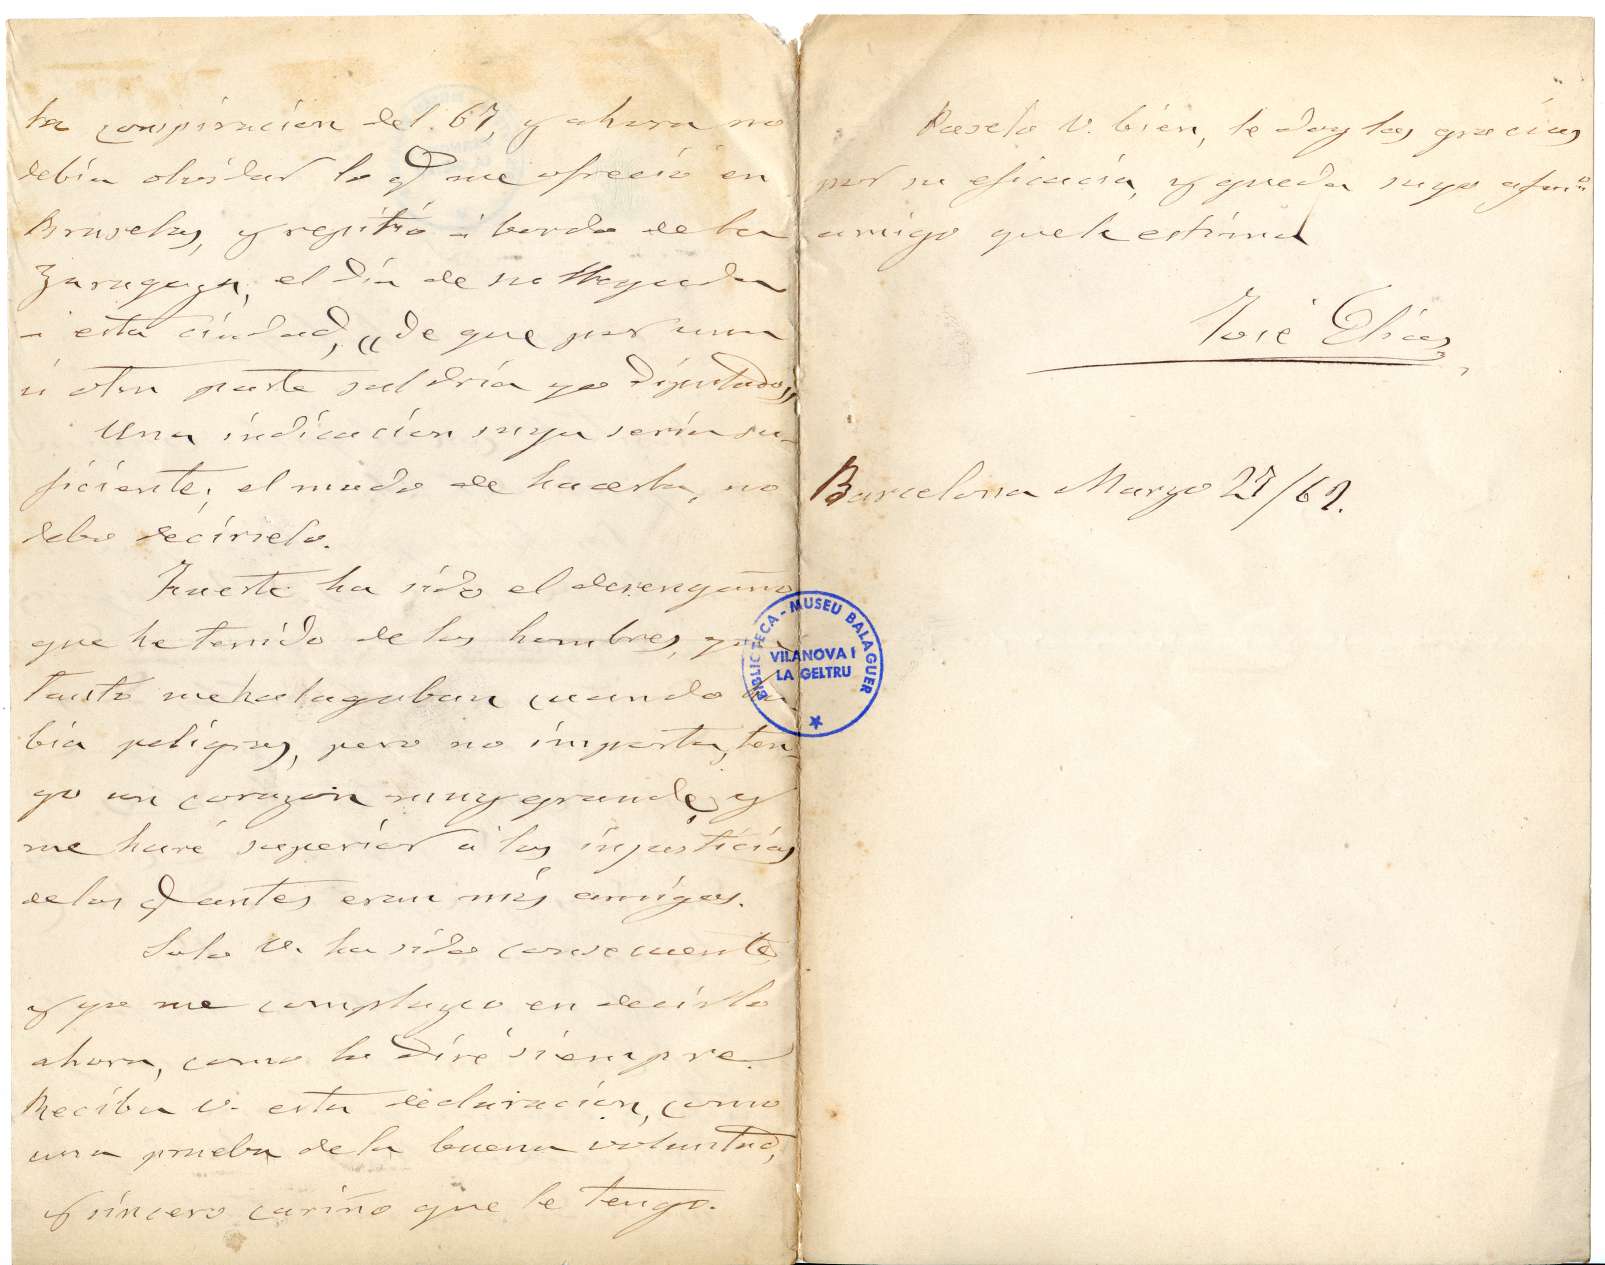 la conspiracion del. 67, y ahora no
debia olvidar lo q me ofreció en
Bruselas, y repitió á bordo de la
Zaragoza, el dia de su llegada
á esta ciudad, "de que por una
ú otra parte saldria yo Diputado,,
Una indicacion suya seria su-
ficiente; el modo de hacerla, no
debo decírselo.
Fuerte ha sido el desengaño
que he tenido de los hombres, q
tanto me halagaban cuando
bia peligros, pero no importa, ten-
go un corazon muy grande, y
me haré superior á las injusticias
de los q antes eran mis amigos.
Solo V. ha sido consecuente,
y yo me complazco en decirlo
ahora, como lo diré siempre.
Reciba V. esta declaracion, como
una prueba de la buena voluntad,
y sincero cariño que le tengo.
Paselo V. bien, le doy las gracias
por su eficacia, y queda suyo afmo
amigo que le estima
José Elias
Barcelona Marzo 27/69.
BIBLIOTECA - MUSEU BALAGUER
VILANOVA I
LA GELTRU